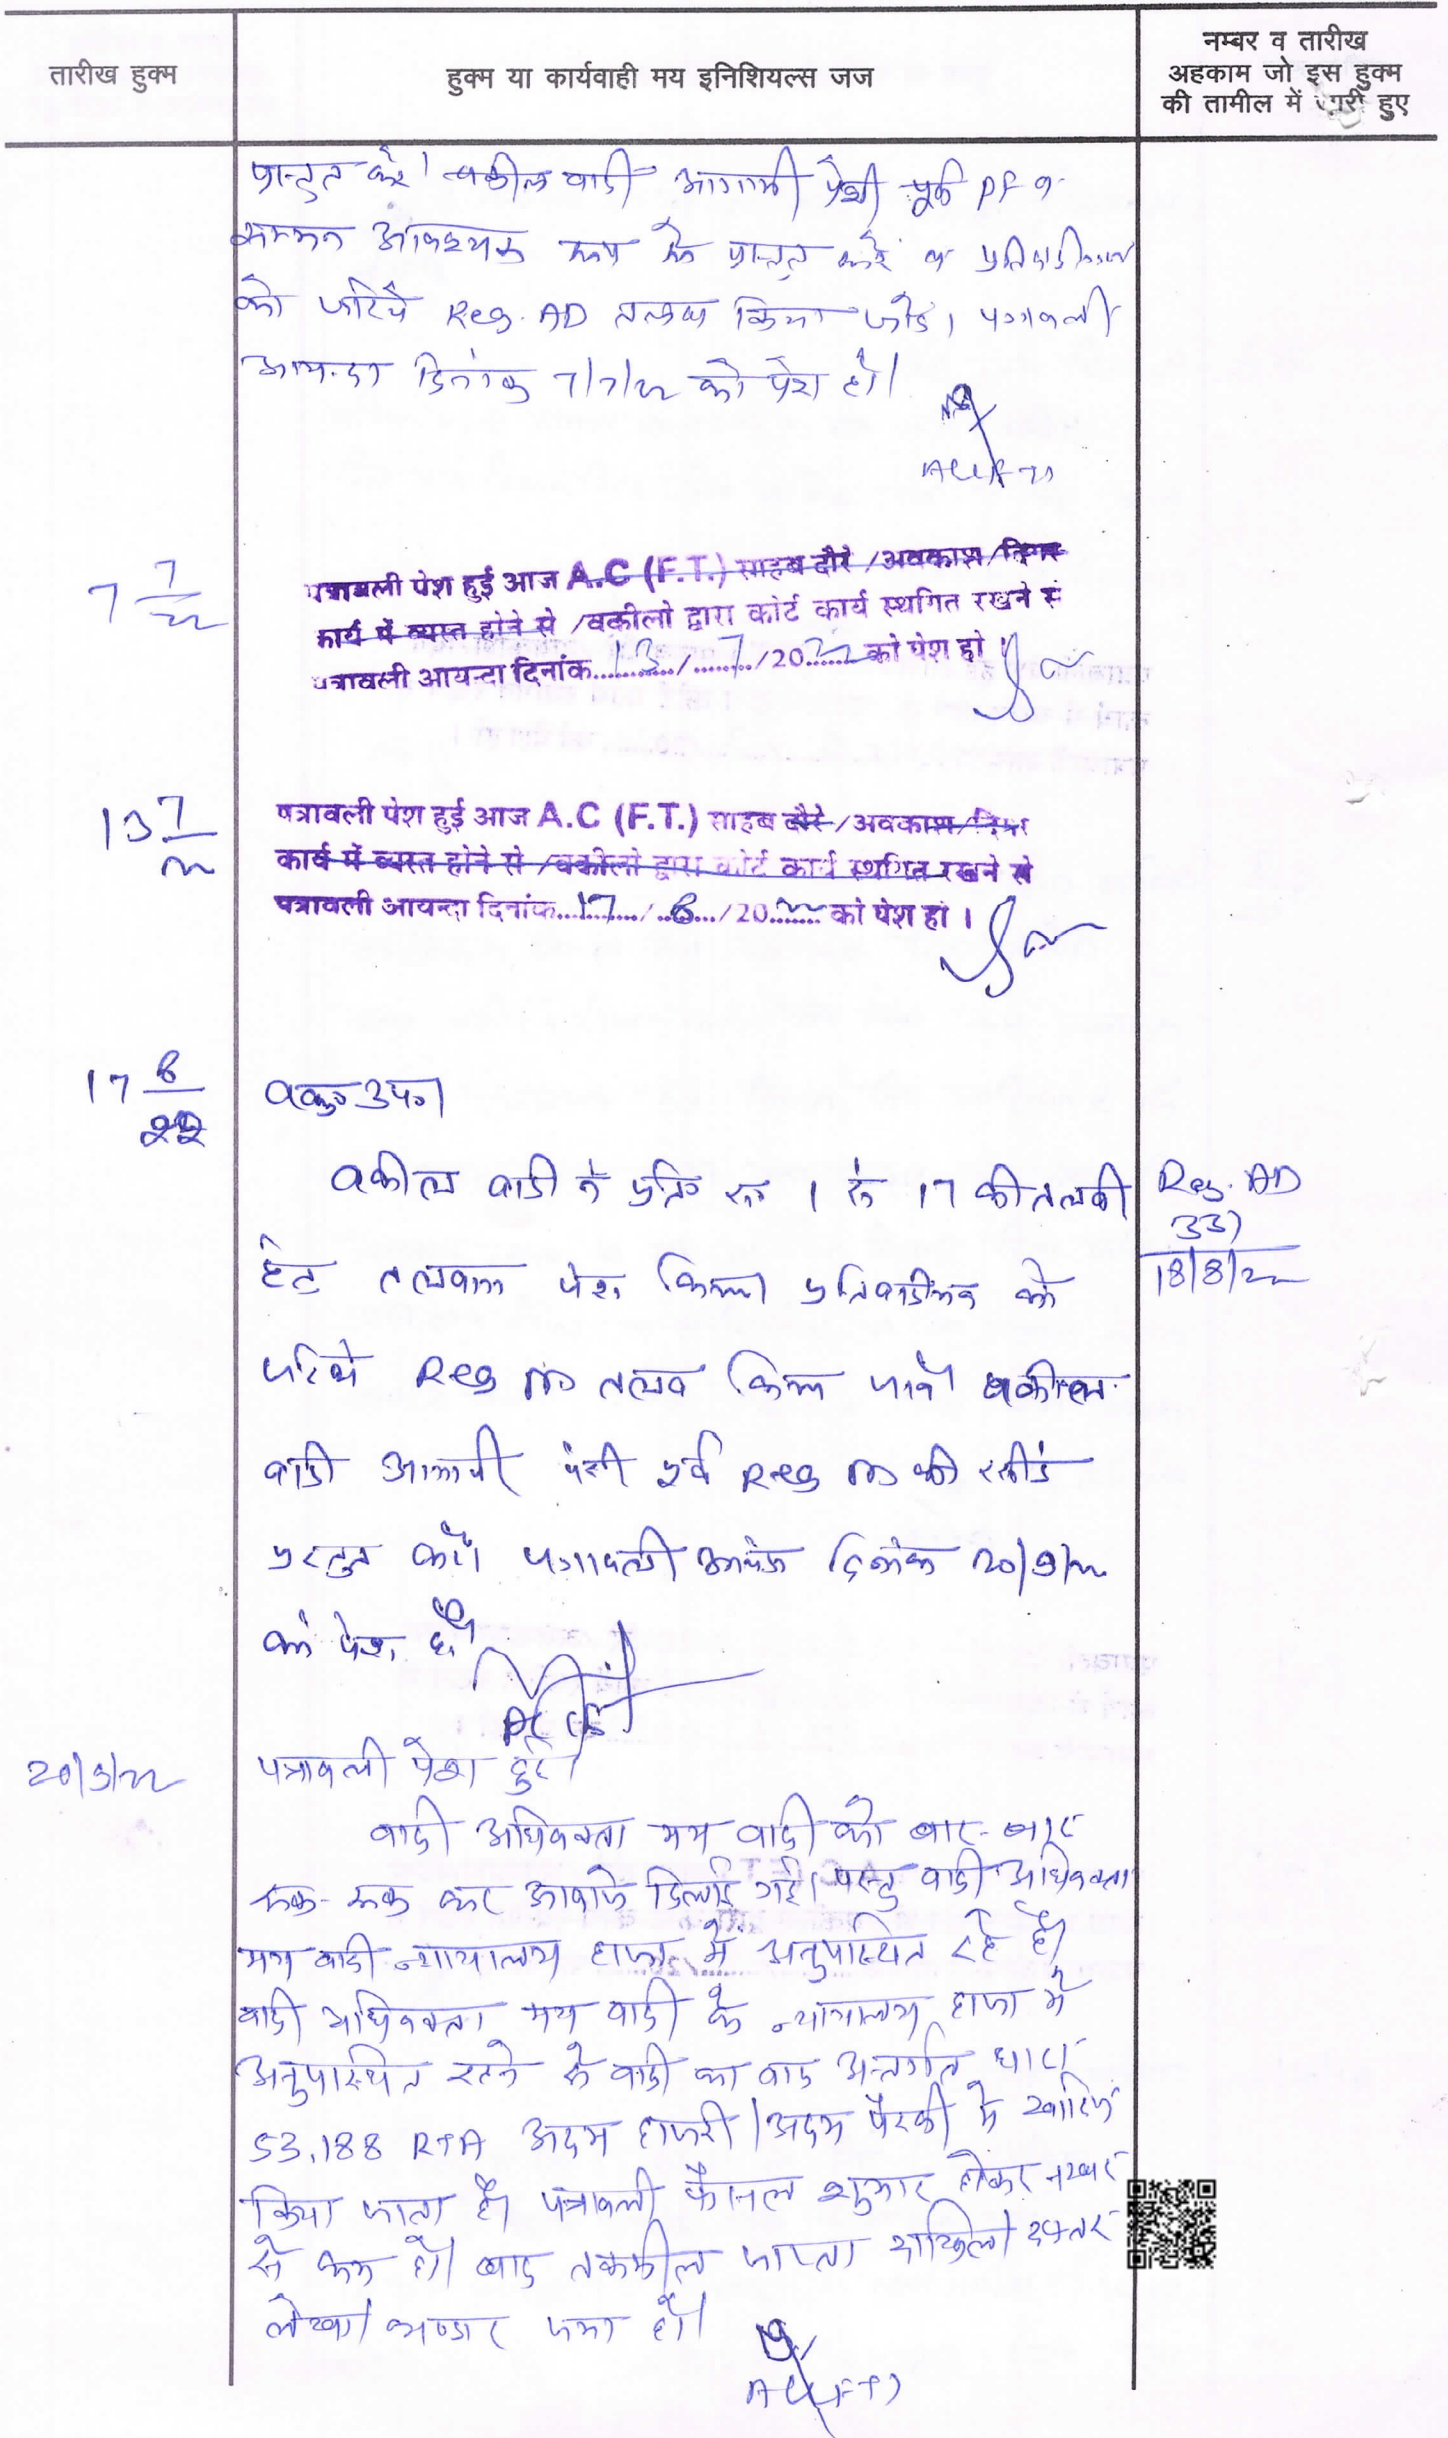 तारीख हुक्म
हुक्म या कार्यवाही मय इनिशियल्स जज
नम्बर व तारीख
अहकाम जो इस हुक्म
की तामील में जारी हुए
प्रस्तुत करें। वकील वादी आगामी पेशी पूर्व PF व
सम्मन आवश्यक रूप से प्रस्तुत करें व प्रतिवादीगण
को जरिये Reg. AD तलब किया जावे। पत्रावली
आयन्दा दिनांक 7/7/22 को पेश हो।
7 7/22
पत्रावली पेश हुई आज A.C (F.T.) साहब दौरे /अवकाश/दिगर
कार्य में व्यस्त होने से /वकीलो द्वारा कोर्ट कार्य स्थगित रखने से
पत्रावली आयन्दा दिनांक....13..../....7/2022 को पेश हो ।
13 7/22
पत्रावली पेश हुई आज A.C (F.T.) साहब दौरे/अवकाश/दिगर
कार्य में व्यस्त होने से /वकीलो द्वारा कोर्ट कार्य स्थगित रखने से
पत्रावली आयन्दा दिनांक....17..../..8.../2022 को पेश हो ।
17 8/22
वकु० उप०।
वकील वादी ने प्रति सं० 1 से 17 की तलबी
हेतु तलवाना पेश किया। प्रतिवादीगण को
जरिये Reg AD तलब किया जावे। वकील
वादी आगामी पेशी पूर्व Reg AD की रसीदें
प्रस्तुत करें। पत्रावली आयंदा दिनांक 20/9/22
को पेश हो।
Reg. AD
337
18/8/22
20/9/22
पत्रावली पेश हुई।
वादी अधिवक्ता मय वादी को बार-बार
रुक-रुक कर आवाजे दिलाई गई। परन्तु वादी अधिवक्ता
मय वादी न्यायालय हाजा में अनुपस्थित रहे है।
वादी अधिवक्ता मय वादी के न्यायालय हाजा में
अनुपस्थित रहने से वादी का वाद अन्तर्गत धारा
53,188 RTA अदम हाजरी/अदम पैरवी में खारिज
किया जाता है। पत्रावली फैसल शुमार होकर नम्बर
से कम हो। बाद तकमील जाप्ता दाखिल दफ्तर
लेखा भण्डार जमा हो।
AC(FT)